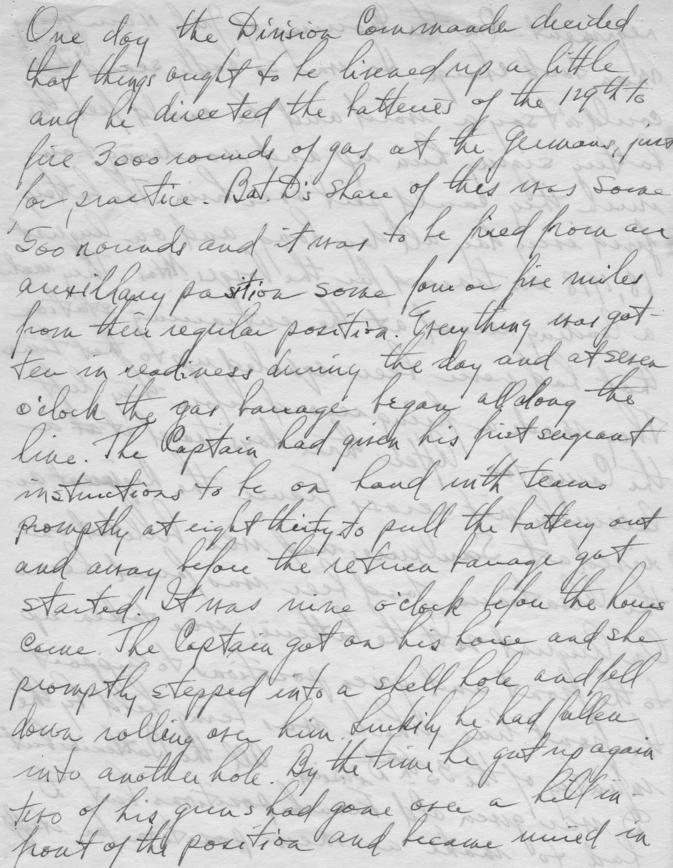 One day the Division Commander decided
that things ought to be livened up a little
and he directed the batteries of the 129th to
fire 3000 rounds of gas at the Germans, just
for practice. Bat. D's share of this was some
500 rounds and it was to be fired from an
auxillary position some four or five miles
from their regular position. Everything was got-
ten in readiness during the day and at seven
o'clock the gas barrage began all along the
line. The Captain had given his first sergeant
instructions to be on hand with teams
promptly at eight thirty to pull the battery out
and away before the return barrage got
started. It was nine o'clock before the horses
came. The Captain got on his horse and she
promptly stepped into a shell hole and fell
down rolling over him. Luckily he had fallen
into another hole. By the time he got up again
two of his guns had gone over a hill in-
front of the position and became mired in